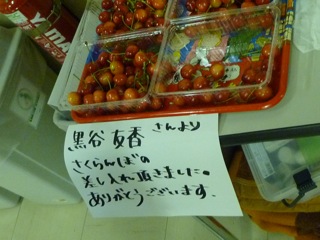 黒谷友香さんより
さくらんぼの
差し入れ頂きました。
ありがとうございます。